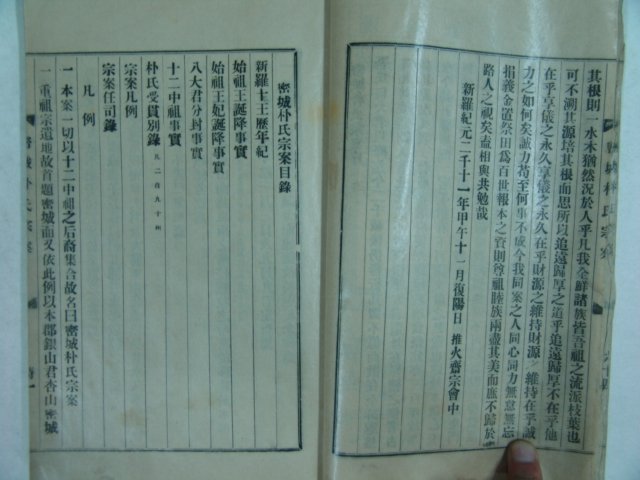 其根則一水木猶然況於人乎凡我全鮮諸族皆吾祖之流派枝葉也
可不溯其源培其根而思所以追遠歸厚之道乎追遠歸厚不在乎他
在乎享儀之永久享儀之永久在乎財源之維持財源之維持在乎誠
力之如何矣誠力苟至何事不成今我同案之人同心同力無怠無忘
捐義金置祭田爲百世報本之資則尊祖睦族兩盡其美而庶不歸於
路人之視矣盍相與共勉哉
新羅紀元二千十一年甲午十一月復陽日 推火齋宗會中
密城朴氏宗案
密城朴氏宗案目錄
新羅十王歷年紀
始祖王誕降事實
始祖王妃誕降事實
八大君分封事實
十二中祖事實
朴氏受貫別錄 凡二百九十州
宗案凡例
宗案任司錄
凡例
一本案一切以十二中祖之后裔集合故名曰密城朴氏宗案
一重祖宗遺地故首題密城而又依此例以本郡銀山君杏山密城
密城朴氏宗案